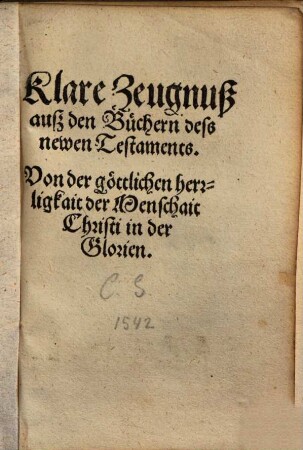 Klare Zeugnuß
auß den Büchern deſs
newen Testaments.
Von der göttlichen herr⸗
ligkait der Menschait
Christi in der
Glorien.
C. S.
1542